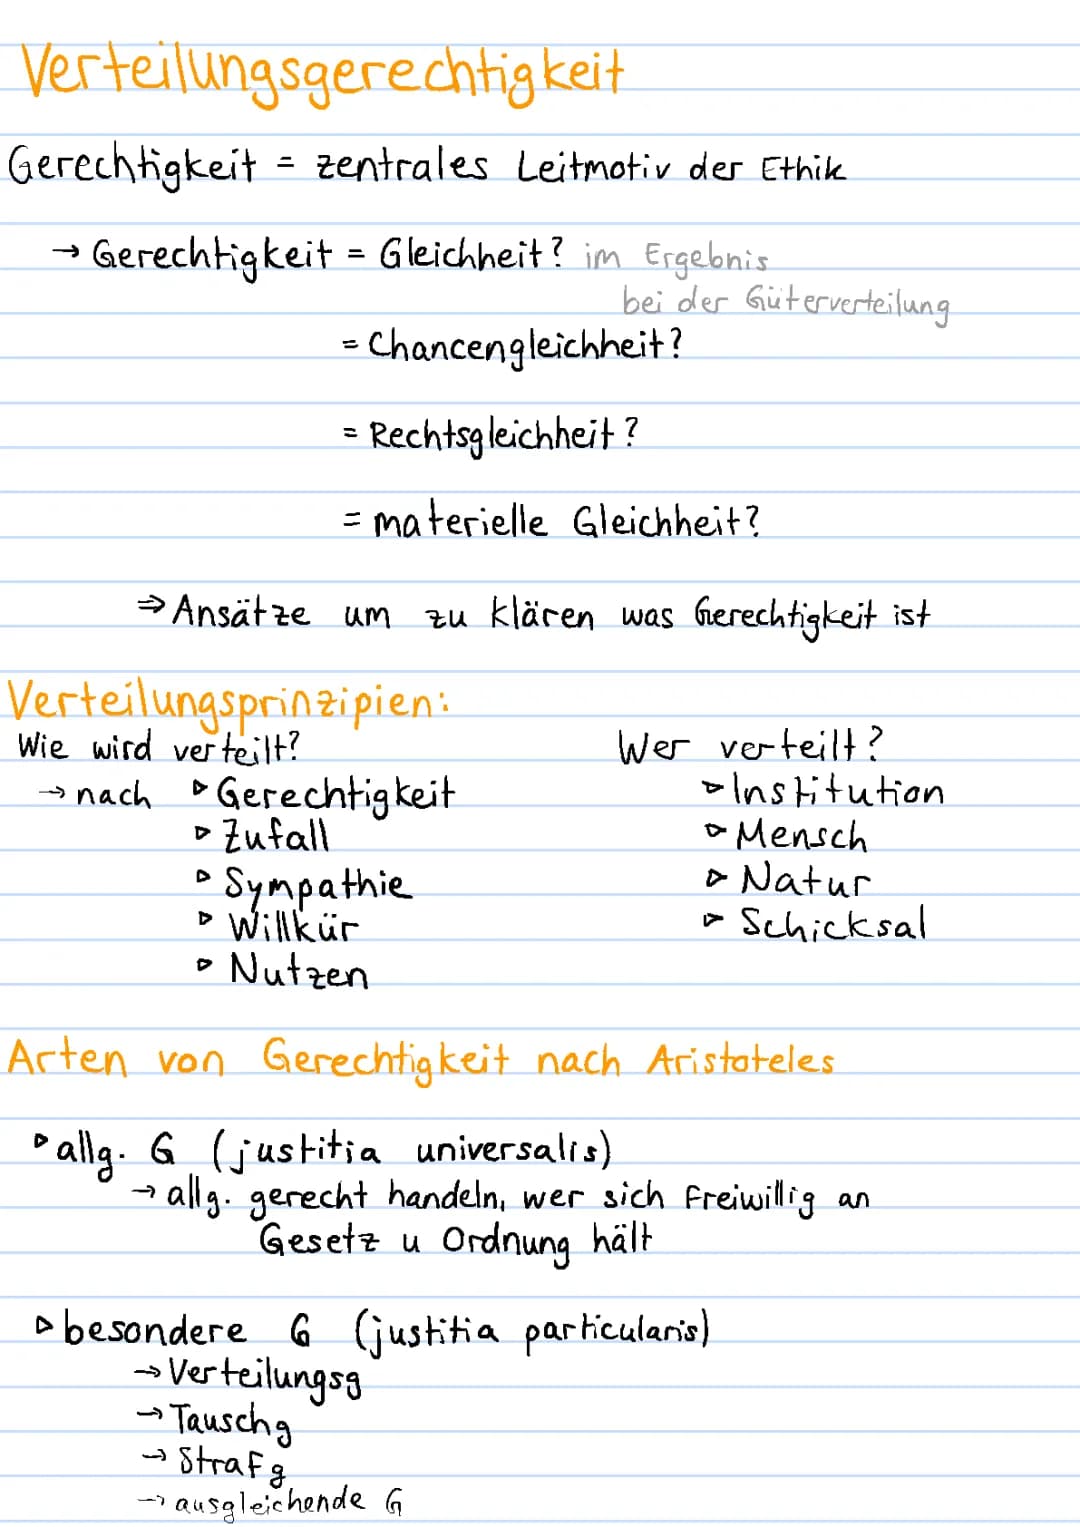 Verteilungsgerechtigkeit
Gerechtigkeit = zentrales Leitmotiv der Ethik
→ Gerechtigkeit = Gleichheit? im Ergebnis
bei der Güterverteilung
= Chancengleichheit?
= Rechtsgleichheit?
= materielle Gleichheit?
⇒ Ansätze um zu klären was Gerechtigkeit ist
Verteilungsprinzipien:
Wie wird verteilt?
→ nach ▹ Gerechtigkeit
▹ Zufall
▹ Sympathie
▹ Willkür
▹ Nutzen
Wer verteilt?
▹ Institution
▹ Mensch
▹ Natur
▹ Schicksal
Arten von Gerechtigkeit nach Aristoteles
▹ allg. G (justitia universalis)
→ allg. gerecht handeln, wer sich Freiwillig an
Gesetz u Ordnung hält
▹ besondere G (justitia particularis)
→ Verteilungsg
→ Tauschg
→ Strafg
→ ausgleichende G